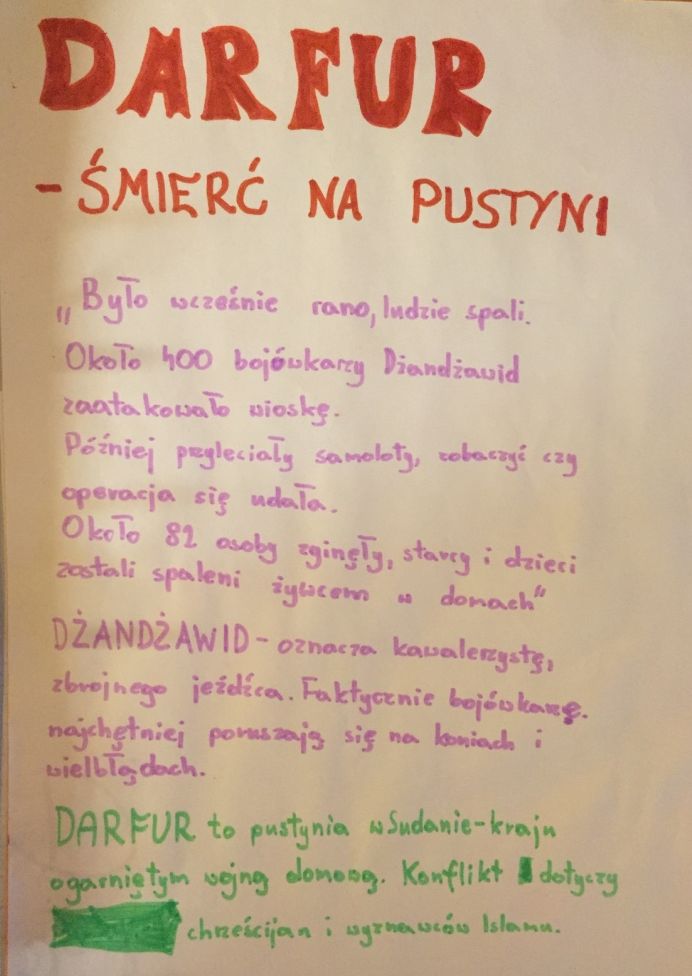 DARFUR
- ŚMIERĆ NA PUSTYNI
„Było wcześnie rano, ludzie spali.
Około 400 bojówkarzy Dżandżawid
zaatakowało wioskę.
Później przyleciały samoloty, zobaczyć czy
operacja się udała.
Około 82 osoby zginęły, starcy i dzieci
zostali spaleni żywcem w domach"
DŻANDŻAWID - oznacza kawalerzystę,
zbrojnego jeźdźca. Faktycznie bojówkarzę.
najchętniej poruszają się na koniach i
wielbłądach.
DARFUR to pustynia w Sudanie - kraju
ogarniętym wojną domową. Konflikt dotyczy
chrześcijan i wyznawców Islamu.